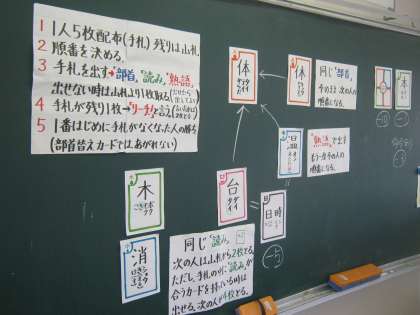 1 1人5枚配布(手札)残りは山札
2 順番を決める。
3 手札を出す→"部首、"読み、"熟語"
出せない時は山札より1枚取る(出せたら出してよい)
4 手札が残り1枚→"リーチ!"と言う
5 1番はじめに手札がなくなった人の勝ち
(部首替えカードではあがれない)
体
タイ
休
同じ"部首"
そのまま次の人の
順番になる。
体
"熟語"で出す
もう一度その人の
順番になる。
温
木
台
ダイ
タイ
日時
消
-5
同じ"読み"
次の人は山札から2枚とる。
ただし、手札の中に"読み"が
合うカードを持っている時は
出せる。次の人が4枚とる。